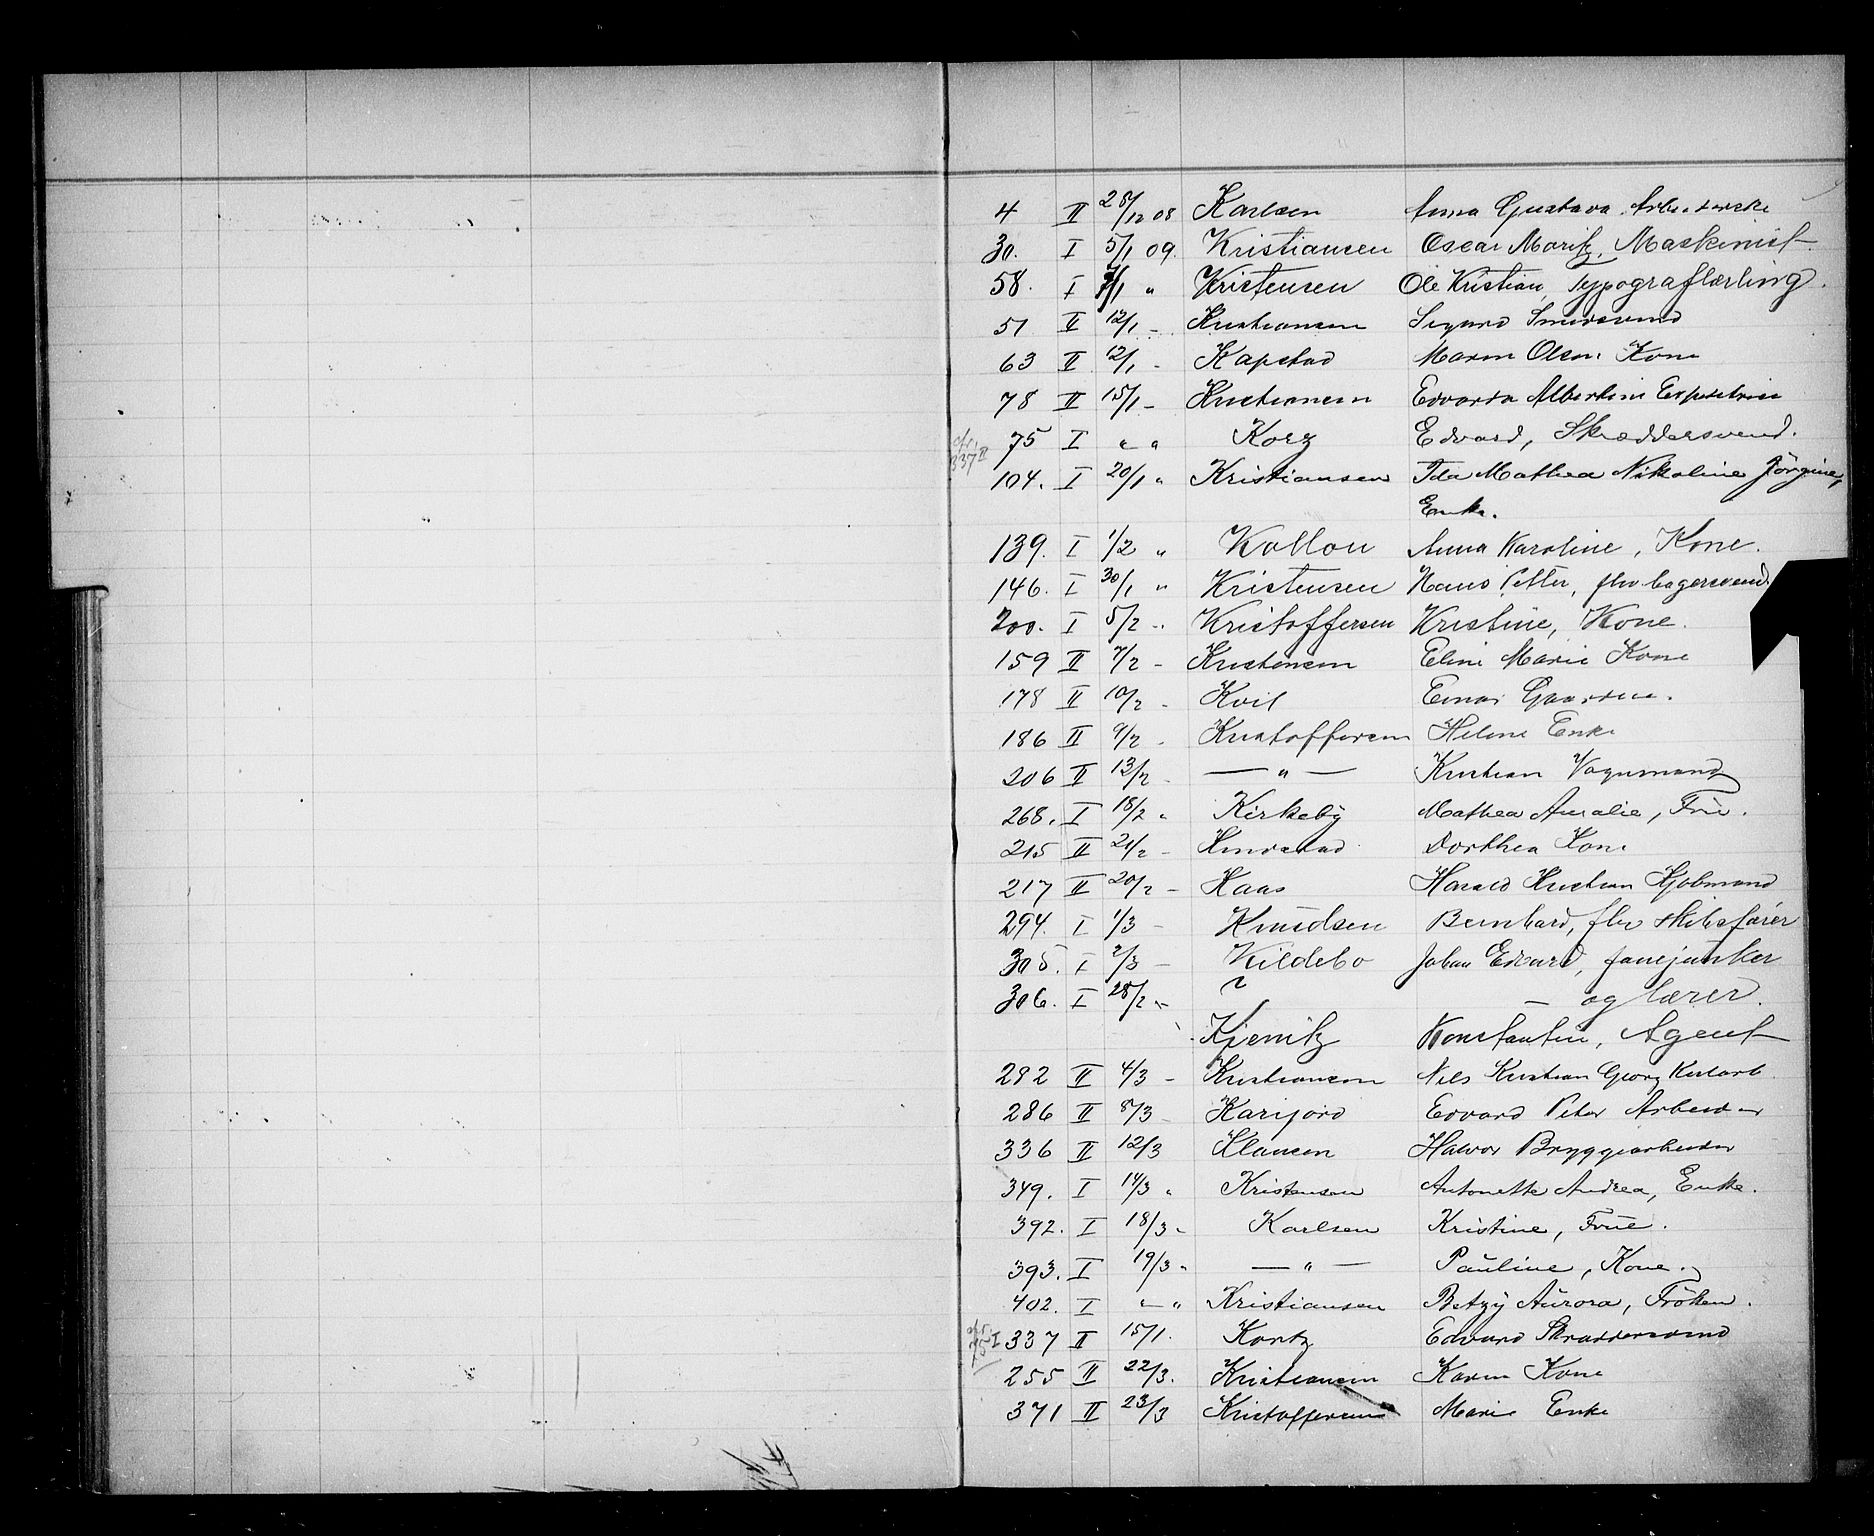 4 II 28/12 08 Karlsen Anna Gustava Arbeiderske
30. I 5/1 09. Kristiansen Oscar Moritz, Maskinist
58. I 7/1 " Kristensen Ole Kristian, Typograflærling.
51 II 12/1 - Kristiansen Sigurd Smedsvend
63 II 12/1 - Kapstad Maren Olsen Kone
78 II 15/1 - Kristiansen Edvarda Albertine Expeditrice
cfr. 337 II 75 I " " Korz Edvard, Skræddersvend.
104. I 20/1 " Kristiansen Ida Mathea Nikoline Jörgine,
Enke.
139. I 1/2 " Kollou Anna Karoline, Kone.
146. I 30/1 " Kristensen Hans Petter, flw bagersvend.
200. I 5/2 -. Kristoffersen Kristine, Kone.
159 II 7/2 - Kristensen Eline Marie Kone
178 II 10/2 - Kvil Einar
186 II 9/2 - Kristoffersen Helene Enke
206 II 13/2 - — " — Kristian Vognmand
268. I 18/2 " Kirkeby Mathea Amalie, Frue.
215 II 21/2 - Dorthea Kone
217 II 20/2 - Kaas Harald Kristian Kjøbmand
294. I 1/3 - Knudsen Bernhard, flw skibsfører
305. I 2/3 - Kildebo Johan Edvard, fanejunker
306. I 28/2 - — og lærer.
Kjenitz Konstantin, Agent
292 II 4/3 - Kristiansen Nils Kristian Georg
286 II 8/3 - Karijord Edvard Peter Arbeider
336 II 12/3 Klausen Halvor Bryggearbeider
349. I 14/3 " Kristensen Antonette Andrea, Enke.
392. I 18/3 - Karlsen Kristine, Frue.
393. I 19/3 - — " — Pauline, Kone.
402. I — " Kristiansen Betzy Aurora, Fröken.
cfr. 75 I 337 II 15/1. Kortz Edvard Skræddersvend
255 II 22/3. Kristiansen Karen Kone
371 II 23/3 Kristoffersen Marie Enke